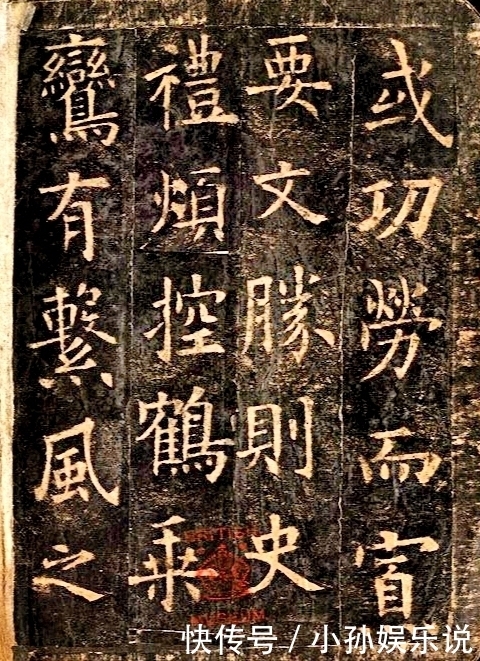 或功勞而寡
要文勝則史
禮煩控鶴乘
鸞有繫風之
BRITISH
MUSEUM
快传号/小孙娱乐说